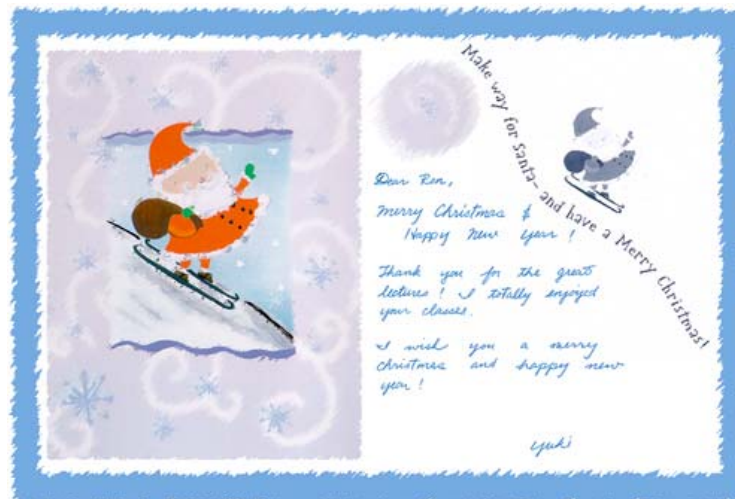 Make way for Santa- and have a Merry Christmas!
Dear Ron,
Merry Christmas &
Happy New Year !
Thank you for the great
lectures ! I totally enjoyed
your classes.
I wish you a merry
christmas and happy new
year !
Yuki